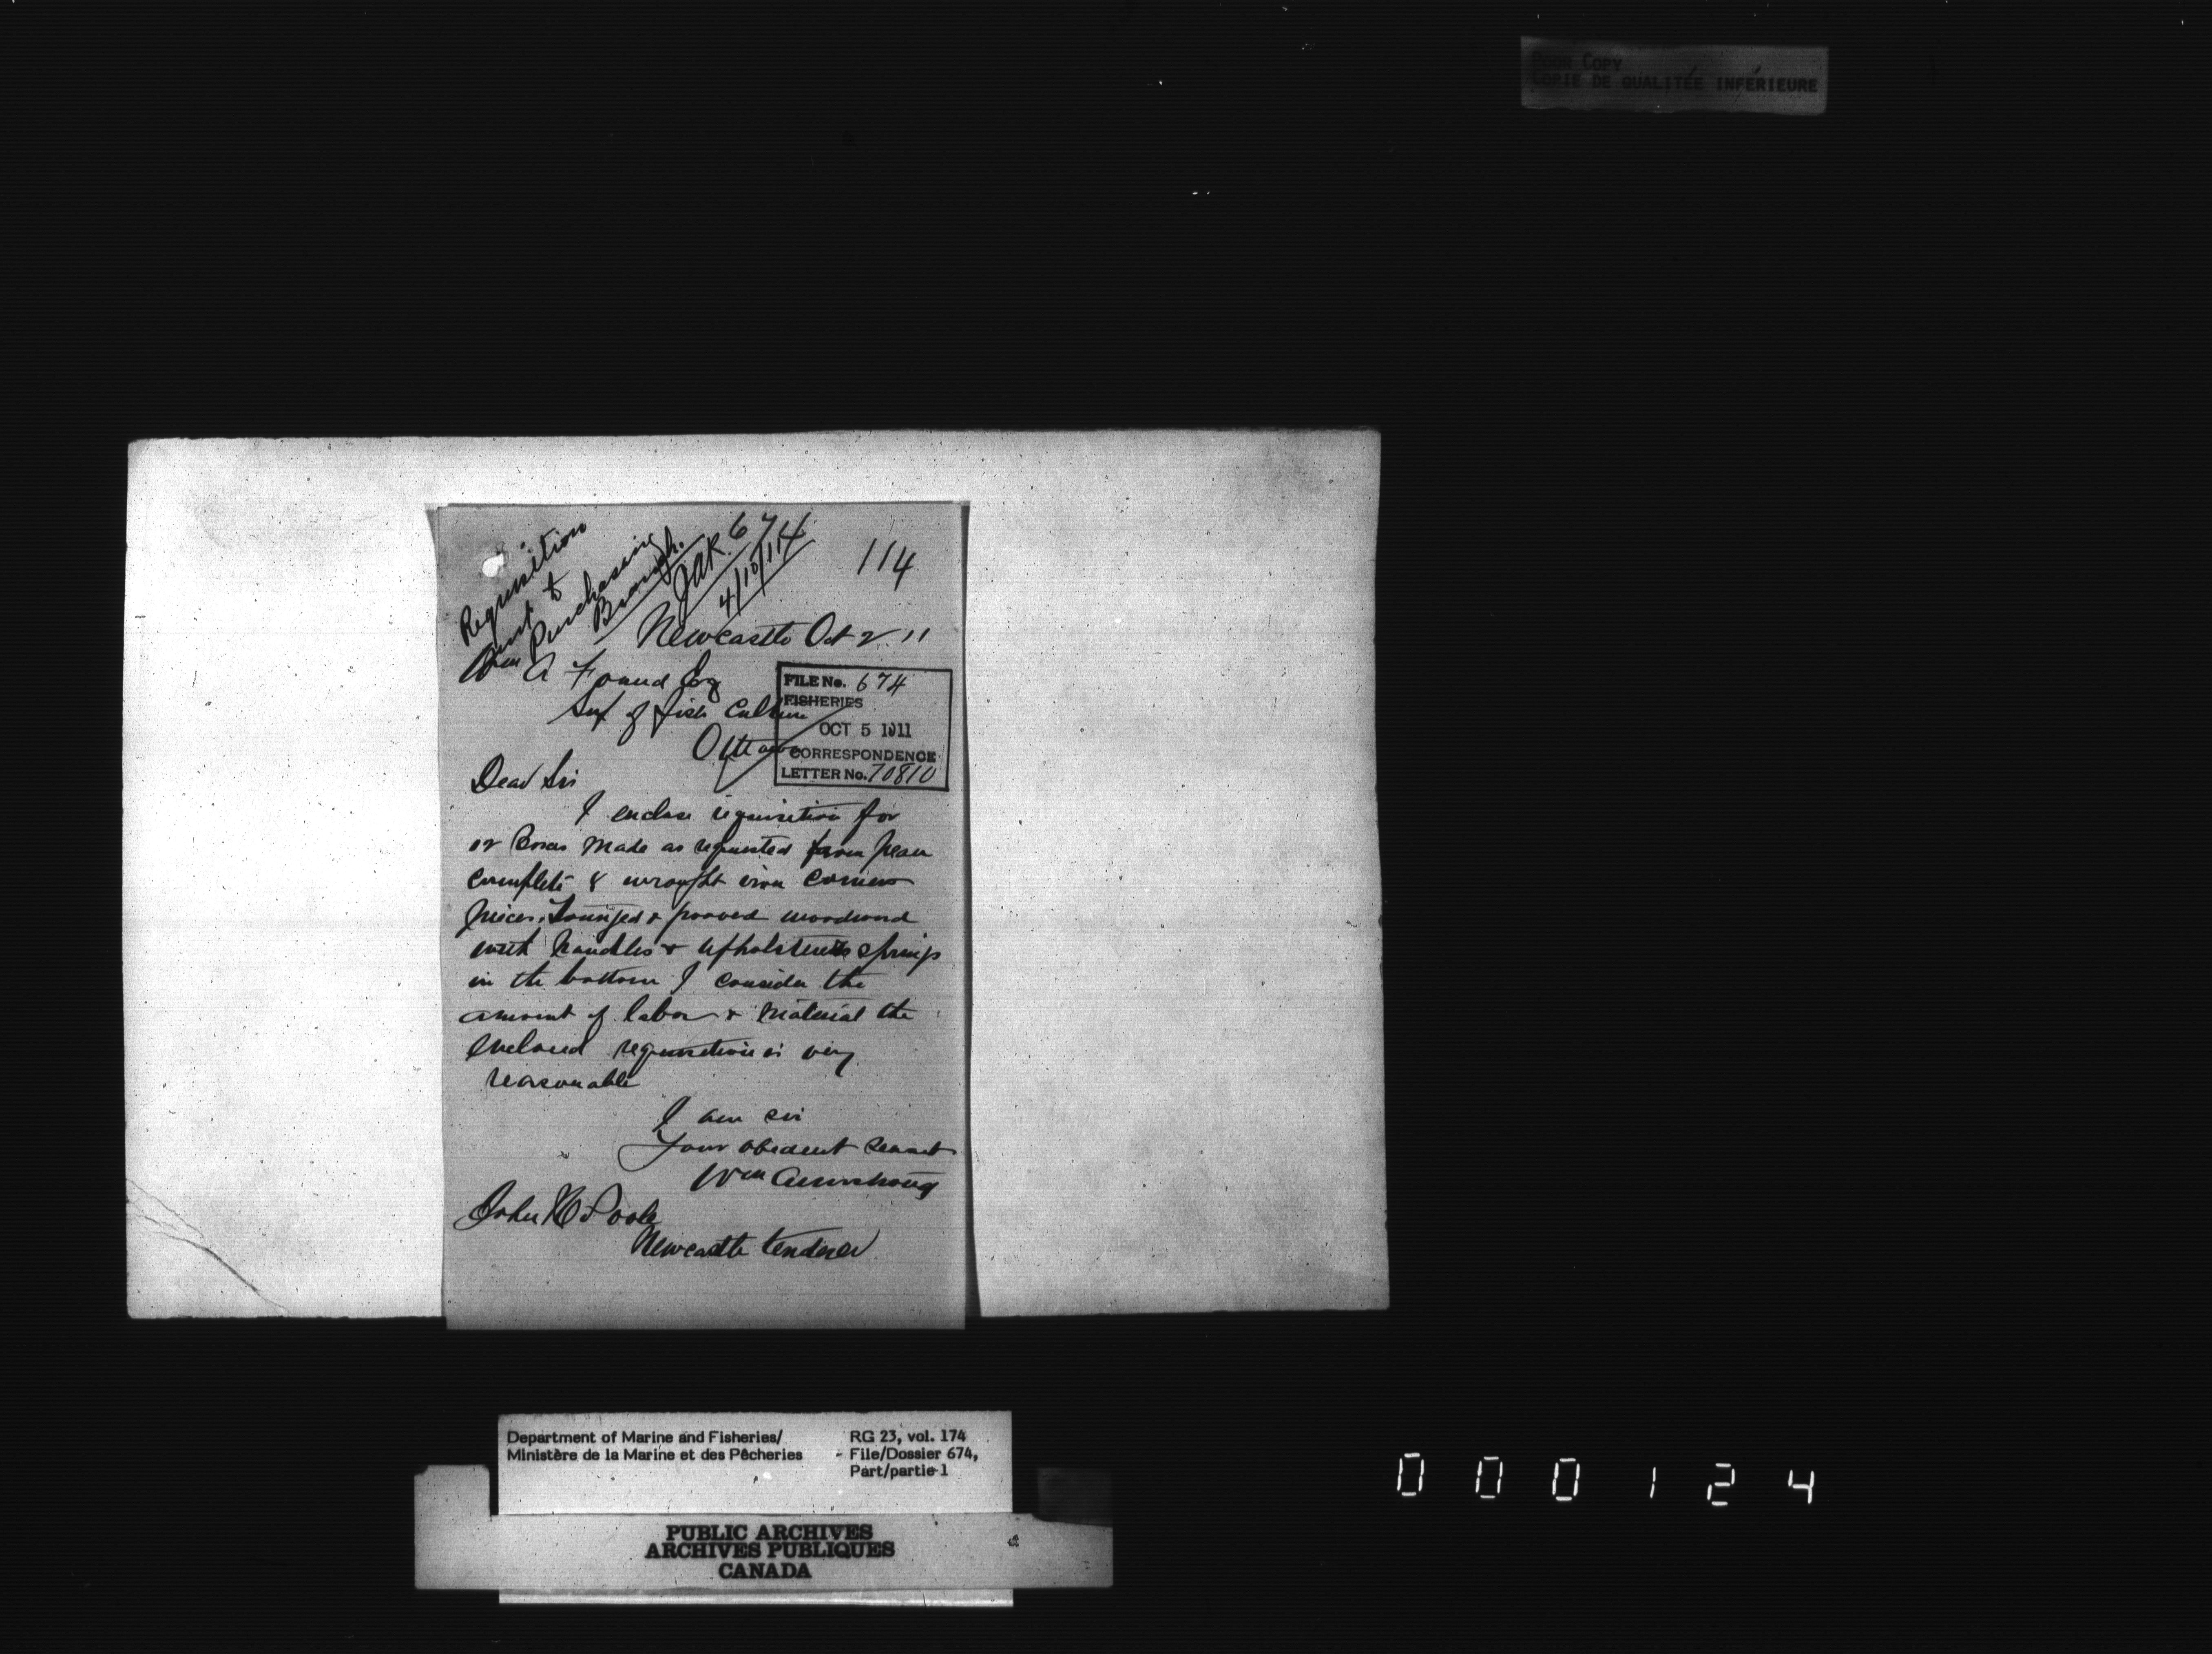 POOR COPY
COPIE DE QUALITÉE INFÉRIEURE
Requisition
sent to
Purchasing
Branch.
JAK.
4/10/11
674
114
Newcastle Oct 2 11
Wm A Found Esq
Supt of fish Culture
Ottawa
FILE No. 674
FISHERIES
OCT 5 1911
CORRESPONDENCE
LETTER No. 70810
Dear Sir
I enclose requisition for
Boxes made as requested from
complete & wrought iron corners
pieces, & grooved
with handles & upholsterers springs
in the bottom I consider the
amount of labor & material the
enclosed requisition is very
reasonable
I am sir
Your obedient servant
Wm Armstrong
John Poole
Newcastle tenderer
Department of Marine and Fisheries/
Ministère de la Marine et des Pêcheries
RG 23, vol. 174
File/Dossier 674,
Part/partie 1
PUBLIC ARCHIVES
ARCHIVES PUBLIQUES
CANADA
000124